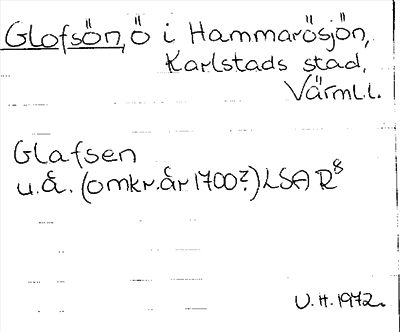 Glofsön, ö i Hammarösjön,
Karlstads stad,
Värml.l.
Glafsen
u.å. (omkr. år 1700?) LSA R8
U.H. 1972.